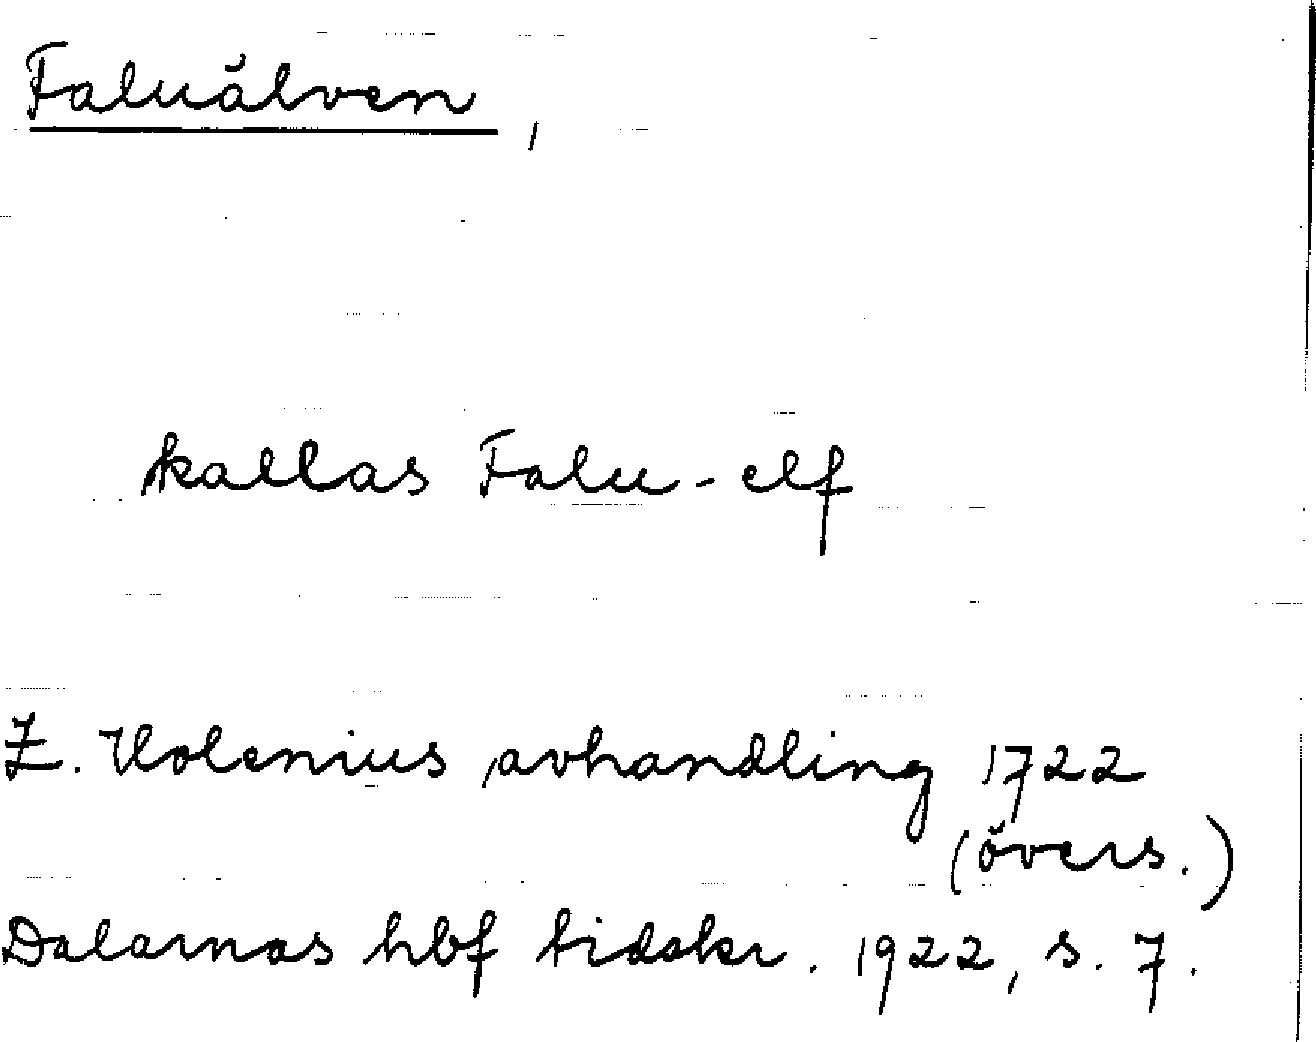 Faluälven,
kallas Falu-elf
Z. Holenius avhandling 1722
(övers.)
Dalarnas hbf tidskr. 1922, s. 7.